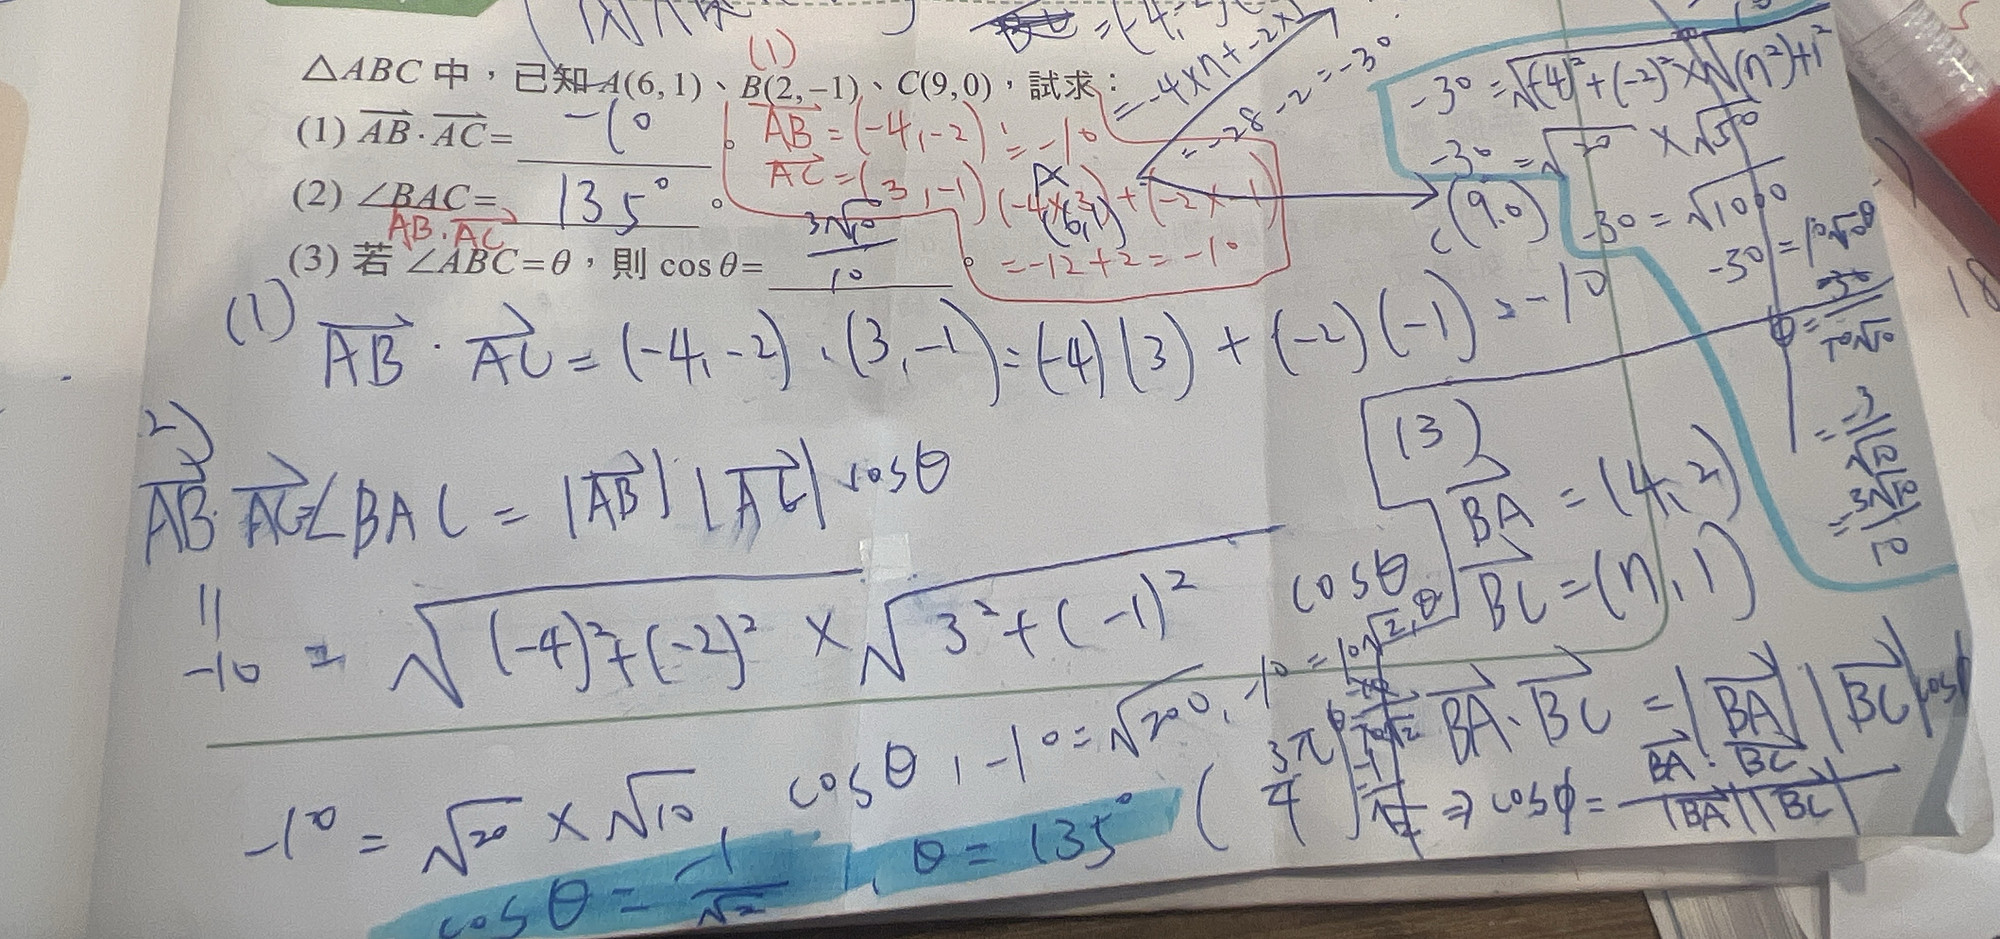 (1)
△ABC 中，已知 A(6, 1)、B(2, −1)、C(9, 0)，試求：
(1) AB · AC = -10 。
(2) ∠BAC = 135° 。
AB · AC
(3) 若 ∠ABC = θ，則 cos θ = 3√10/10 。
AB = (-4, -2)
AC = (3, -1)
= -10
(-4×3) + (-2×-1)
= -12 + 2 = -10
A
(6,1)
= -4×n + -2×1
= -28 - 2 = -30
C (9.0)
-30 = √(-4)²+(-2)² × √(n²)+1²
-30 = √20 × √50
-30 = √1000
-30 = 10√10 θ
θ = -30/10√10
= -3/√10
= -3√10/10
(1) AB · AC = (-4, -2) · (3, -1) = (-4)(3) + (-2)(-1) = -10
2)
AB · AC = ∠BAC = |AB| |AC| cosθ
||
-10 = √(-4)²+(-2)² × √3²+(-1)² cosθ
-10 = √20 × √10 cosθ, -10 = √200, -10 = 10√2, θ
cosθ = -1/√2, θ = 135° (3π/4)
(3)
BA = (4, 2)
BC = (n, 1)
BA · BC = |BA| |BC| cosϕ
⇒ cosϕ = BA · BC / |BA| |BC|